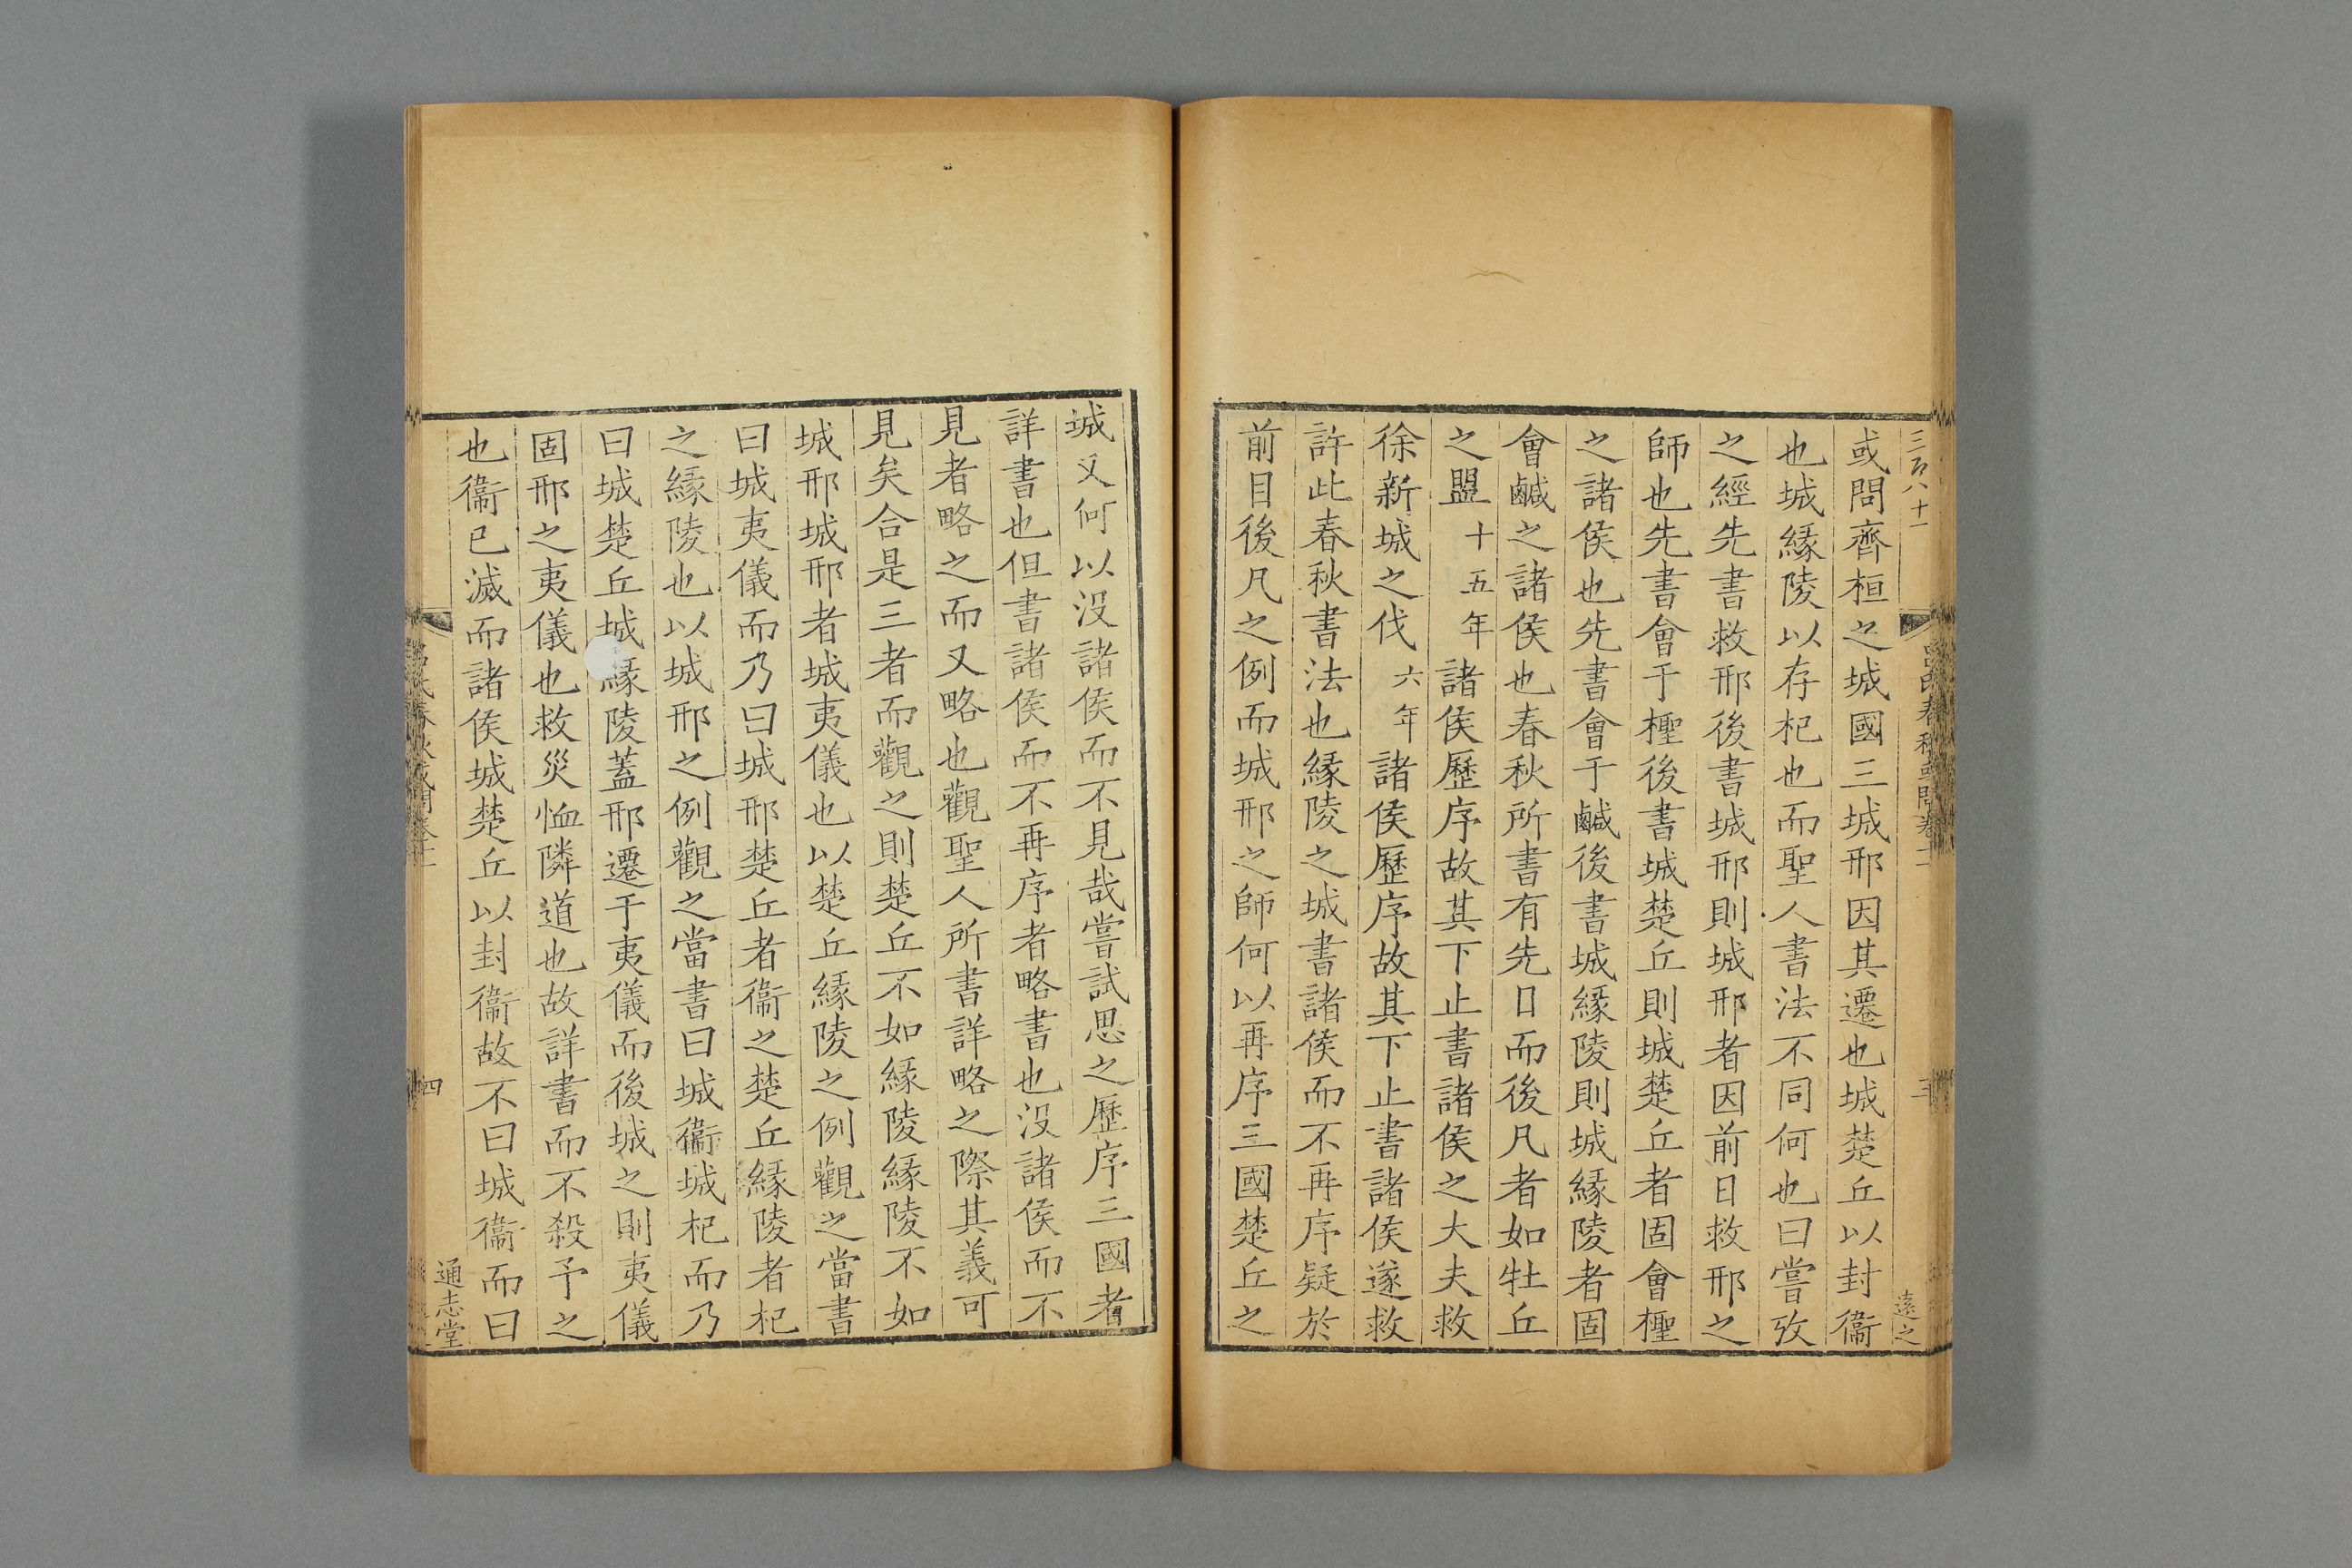 三百八十一
或問齊桓之城國三城邢因其遷也城楚丘以封衞
也城緣陵以存杞也而聖人書法不同何也曰嘗攷
之經先書救邢後書城邢則城邢者因前日救邢之
師也先書會于檉後書城楚丘則城楚丘者固會檉
之諸侯也先書會于鹹後書城緣陵則城緣陵者固
會鹹之諸侯也春秋所書有先目而後凡者如牡丘
之盟十五年諸侯歷序故其下止書諸侯之大夫救
徐新城之伐六年諸侯歷序故其下止書諸侯遂救
許此春秋書法也緣陵之城書諸侯而不再序疑於
前目後凡之例而城邢之師何以再序三國楚丘之
城又何以没諸侯而不見哉嘗試思之歷序三國者
詳書也但書諸侯而不再序者略書也没諸侯而不
見者略之而又略也觀聖人所書詳略之際其義可
見矣合是三者而觀之則楚丘不如緣陵緣陵不如
城邢城邢者城夷儀也以楚丘緣陵之例觀之當書
曰城夷儀而乃曰城邢楚丘者衞之楚丘緣陵者杞
之緣陵也以城邢之例觀之當書曰城衞城杞而乃
曰城楚丘城緣陵蓋邢遷于夷儀而後城之則夷儀
固邢之夷儀也救災恤隣道也故詳書而不殺予之
也衞已滅而諸侯城楚丘以封衞故不曰城衞而曰
四
通志堂